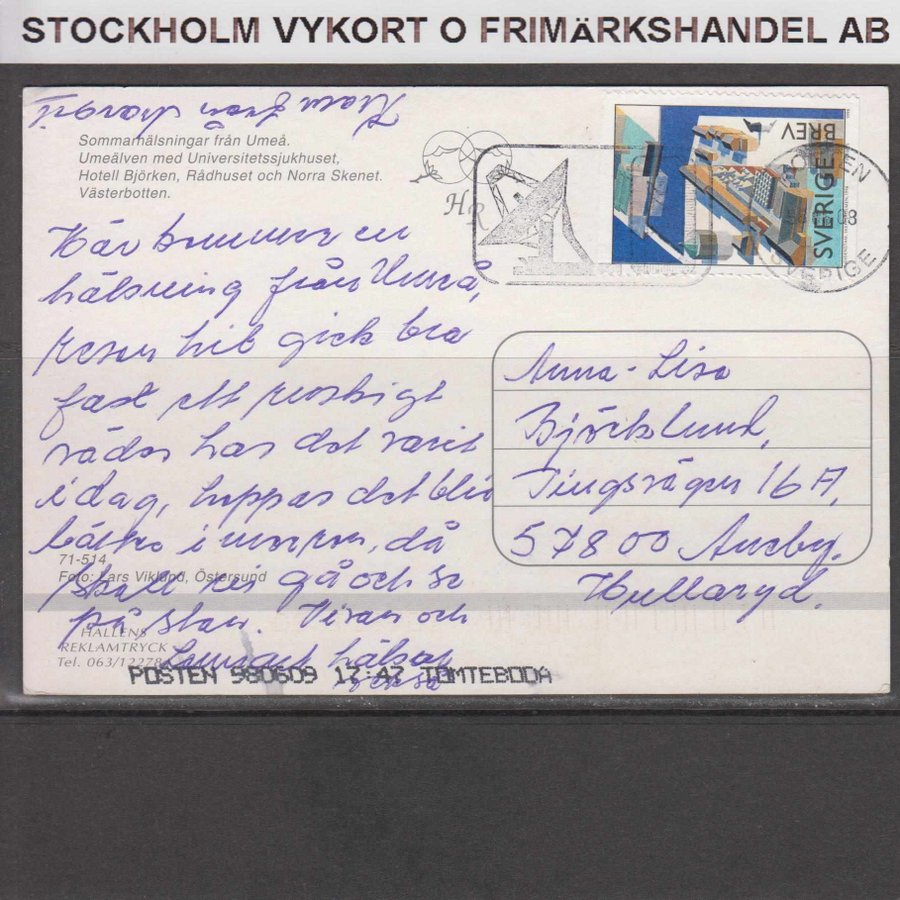 STOCKHOLM VYKORT O FRIMÄRKSHANDEL AB
Kram från Margit
Sommarhälsningar från Umeå.
Umeälven med Universitetssjukhuset,
Hotell Björken, Rådhuset och Norra Skenet.
Västerbotten.
HR
SVERIGE BREV
POSTEN
SVERIGE
Här kommer en
hälsning från Umeå,
resan hit gick bra
fast ett ruskigt
väder har det varit
idag, hoppas det blir
bättre i morgon, då
skall vi gå och se
på stan. Vivan och
Lennart hälsar
också
Anna-Lisa
Björklund,
Tingsvägen 16 A,
578 00 Aneby.
Hullaryd.
71-514
Foto: Lars Viklund, Östersund
HALLENS
REKLAMTRYCK
Tel. 063/12278
POSTEN 980609 17:47 TOMTEBODA